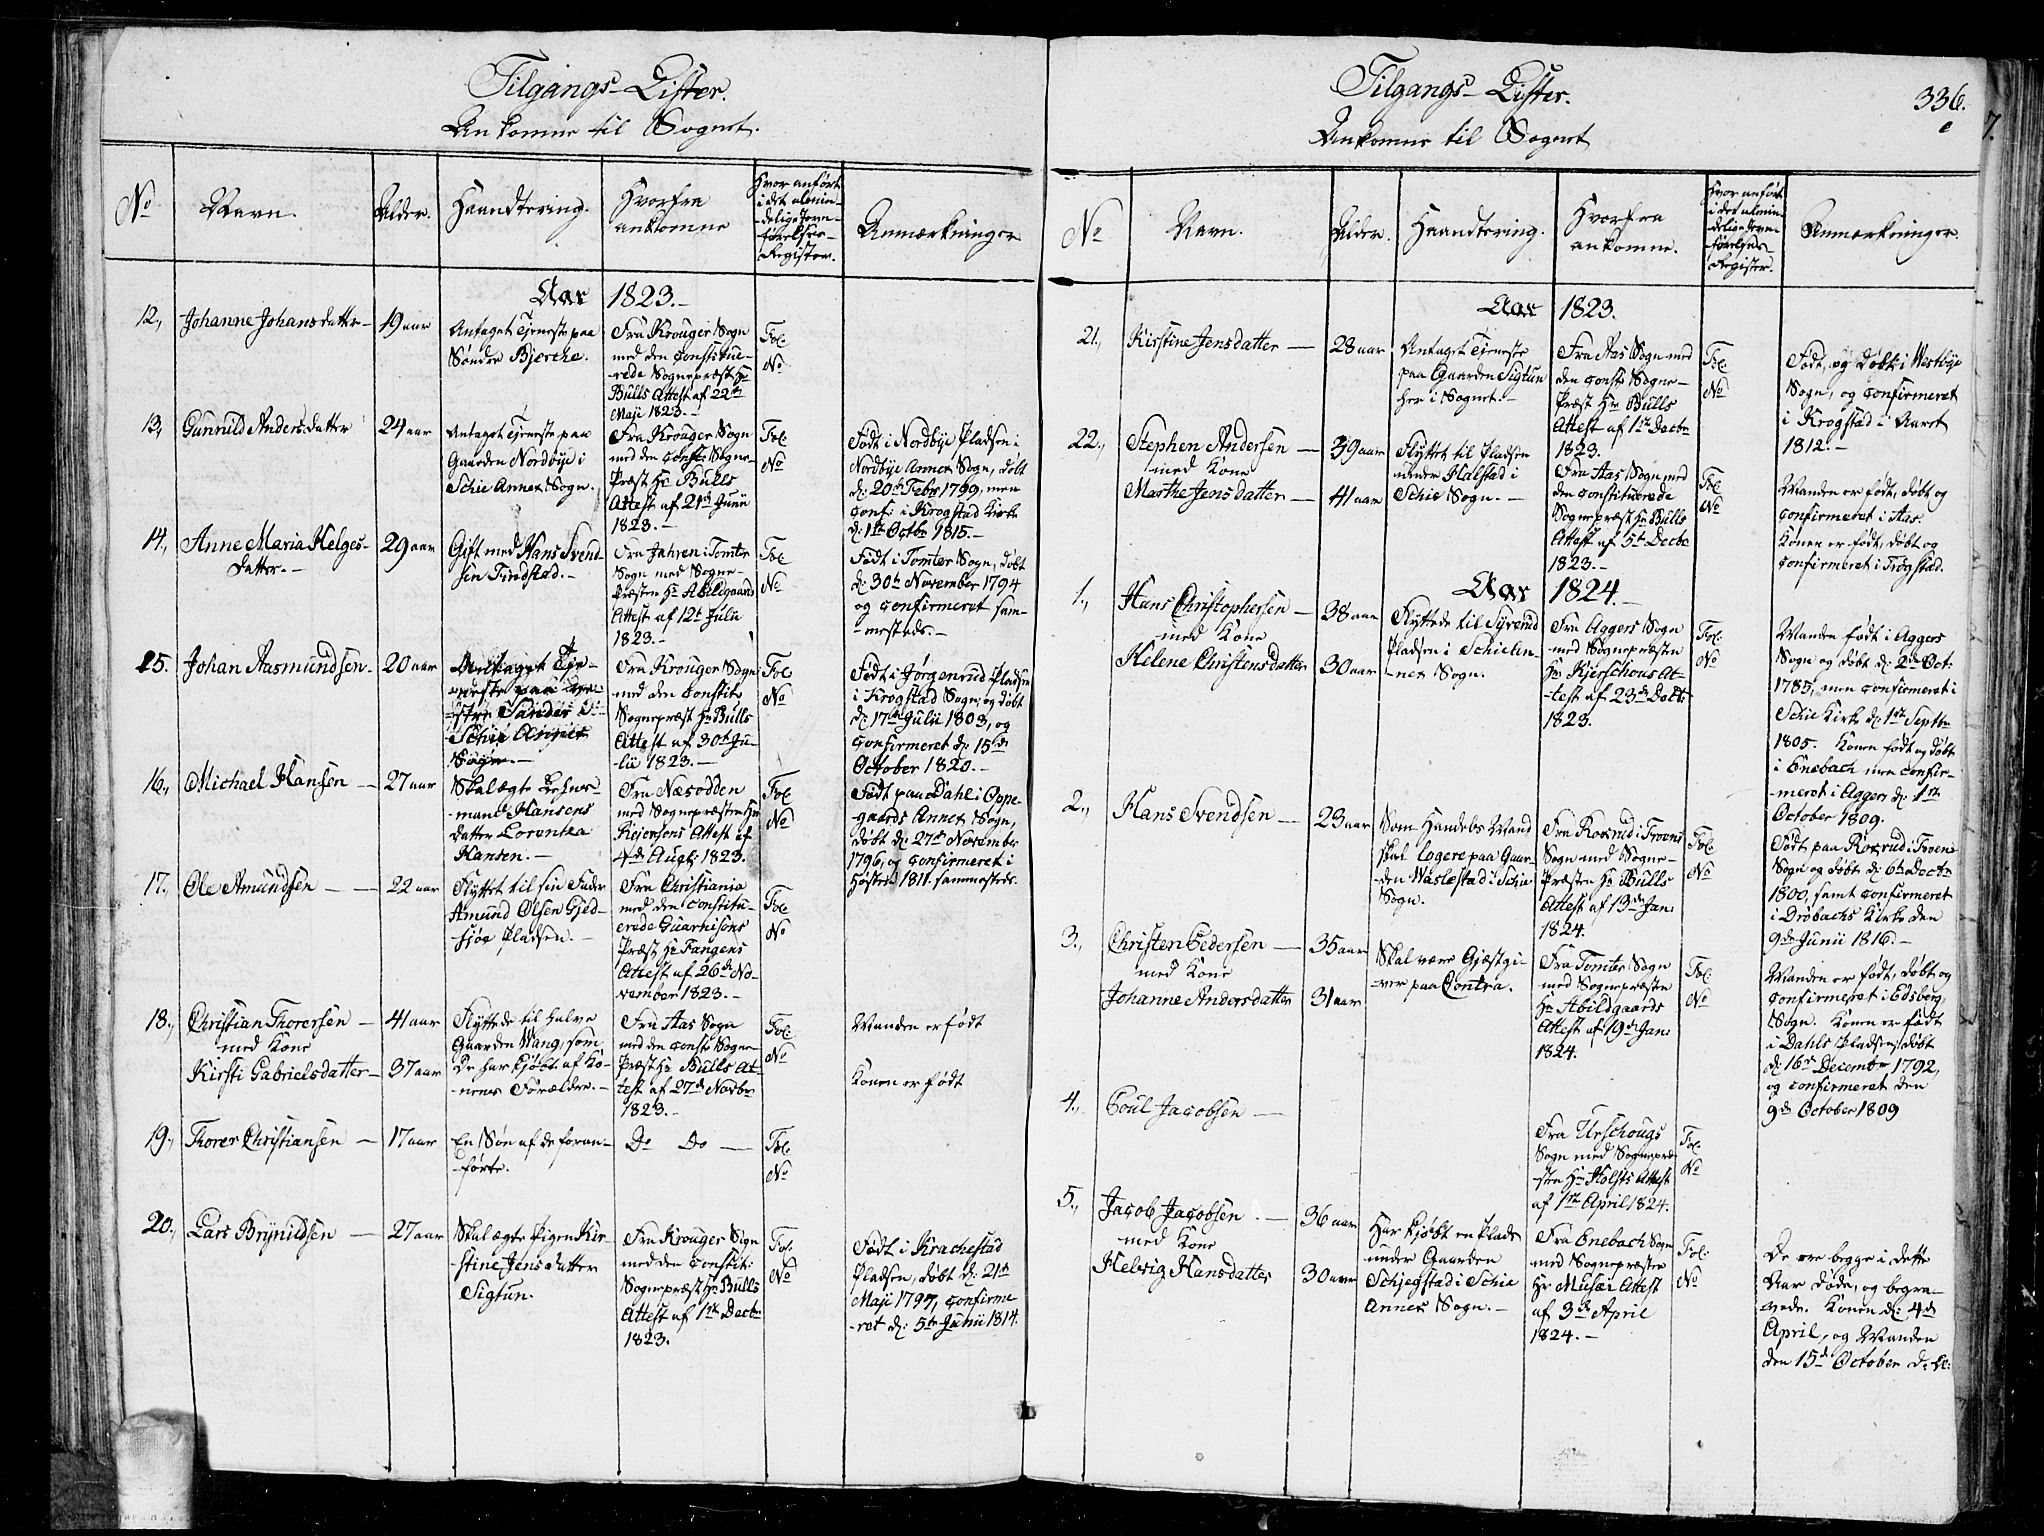 Tilgangs-Lister.
Ankomne til Sognet.
No
Navn.
Alder.
Haandtering.
Hvorfra
ankomne
Hvor anført
i det almin-
-delige Jevn-
-førelses-
Register.
Anmærkninger
Aar 1823.-
12., Johanne Johansdatter-
19 aar
Antaget Tjeneste paa
Søndre Bjerche.
Fra Krouger Sogn
med den Constitue-
-rede Sognepræst Hr
Bulls Attest af 22de
Maji 1823.-
Fol:
No
13, Gunnild Andersdatter
24 aar
Antaget Tjeneste paa
Gaarden Nordbye i
Schie Annex Sogn.
Fra Krouger Sogn
med den Const: Sogne-
Præst Hr Bulls
Attest af 21de Junii
1823.-
Fol:
No
Født i Nordbye Pladsen i
Nordbye Annex Sogn, døbt
d: 20de Febr 1799, men
Conf: i Krogstad Kirke
d: 1te Octbr 1815.-
14., Anne Maria Helges-
datter.-
29 aar
Gift med Hans Svend-
sen Finstad.-
Fra Jahren i Tomter
Sogn med Sogne-
Præsten Hr Abildgaards
Attest af 12te Julii
1823.-
Fol:
No
Født i Tomter Sogn, døbt
d: 30te November 1794
og confirmeret sam-
-mesteds.-
15. Johan Aasmundsen-
20 aar
Antaget Tje-
neste paa
Sander i
Schie Annex
Sogn.-
Fra Krouger Sogn
med den Constit:
Sognepræst Hr Bulls
Attest af 30te Ju-
-lii 1823.-
Fol:
No
Født i Jørgenrud Pladsen
i Krogstad Sogn, og døbt
d: 17de Julii 1803, og
Confirmeret d: 15de
October 1820.-
16., Michael Hansen-
27 aar
Skal ægte Lehns-
-mand Hansens
Datter Lorentza
Hansen.-
Fra Næsodden
med Sognepræsten Hr
Reiersens Attest af
4de Augt: 1823.
Fol:
No
Født paa Dahl i Oppe-
-gaards Annex Sogn,
døbt d: 27de November
1796, og Confirmeret i
Høsten 1811 sammesteds.
17., Ole Amundsen -
22 aar
Flyttet til sin Fader
Amund Olsen Gjed-
-sjøe Pladsen.-
Fra Christiania
med den Constitu-
erede Guarnisons
Præst Hr Fangens
Attest af 26de No-
vember 1823.-
Fol:
No
18., Christian Thorersen -
med Kone
Kirsti Gabrielsdatter-
41 aar
37 aar
Flyttede til halve
Gaarden Wang, som
De har kjøbt af Ko-
nenes Forældre.-
Fra Aas Sogn
med den Const: Sogne-
Præst Hr Bulls At-
test af 27de Novbr
1823.-
Fol:
No
Manden er født
Konen er født
19., Thorer Christiansen -
17 aar
En Søn af de foran-
-førte.
Do Do -
Fol:
No
20., Lars Brynildsen -
27 aar
Skal ægte Pigen Kir-
-stine Jensdatter
Sigtun.
Fra Krouger Sogn
med den Constit:
Sognepræst Hr Bulls
Attest af 1te Decbr
1823.
Fol:
No
Født i Krachestad
Pladsen, døbt d: 21de
Maji 1797, Confirme-
-ret d: 5te Junii 1814.
Tilgangs-Lister.
Ankomne til Sognet
336.
7.
No
Navn.
Alder.
Haandtering.
Hvorfra
ankomne.
Hvor anført
i det almin-
-delige Jevn-
-førelses
Register.
Anmærkninger.
Aar 1823.
21., Kirstine Jensdatter -
28 aar
Antaget Tjeneste
paa Gaarden Sigtun
her i Sognet.-
Fra Aas Sogn med
den Const: Sogne-
Præst Hr Bulls
Attest af 1te Decbr
1823.
Fol:
No
Født, og døbt i Westbye
Sogn, og Confirmeret
i Krogstad i Aaret
1812.-
22., Stephen Andersen -
med Kone
Marthe Jensdatter -
39 aar
41 aar
Flyttet til Pladsen
under Halstad i
Schie Sogn.-
Fra Aas Sogn med
den Constituerede
Sognepræst Hr Bulls
Attest af 5te Decbr
1823.-
Fol:
No
Manden er født, døbt og
Confirmeret i Aas.
Konen er født, døbt og
Confirmeret i Krogstad.
Aar 1824.-
1., Hans Christophersen -
med Kone
Helene Christensdatter
38 aar
30 aar
Flyttede til Syverud
Pladsen i Schie An-
-nex Sogn.
Fra Aggers Sogn
med Sognepræsten
Hr Kjerschous At-
-test af 23de Decbr
1823.
Fol:
No
Manden født i Aggers
Sogn og døbt d: 2de Oct:
1785, men Confirmeret i
Schie Kirke d: 1te Septbr
1805. Konen født og døbt
i Enebach men confir-
-meret i Aggers d: 1te
October 1809.
2., Hans Svendsen -
23 aar
Som Handels Mand
skal logere paa Gaar-
-den Waslestad i Schie
Sogn.
Fra Roxrud i Froens
Sogn med Sogne-
Præsten Hr Bulls
Attest af 13de Jan:
1824.
Fol:
No
Født paa Roxrud i Froens
Sogn og døbt d: 6te Decbr
1800, samt Confirmeret
i Drøbachs Kirke den
9de Junii 1816.-
3., Christen Pedersen -
med Kone
Johanne Andersdatter
35 aar
31 aar
Skal være Gjæstgi-
-ver paa Contra.
Fra Tomter Sogn
med Sognepræsten
Hr Abildgaards
Attest af 19de Jan:
1824.
Fol:
No
Manden er født, døbt og
Confirmeret i Edsberg
Sogn. Konen er født
i Dahls Pladsen, døbt
d: 16de December 1792,
og Confirmeret den
9de October 1809
4., Poul Jacobsen -
Fra Urschougs
Sogn med Sognepræ-
-sten Hr Holsts Attest
af 1te April 1824.
Fol:
No
5., Jacob Jacobsen.-
med Kone
Helvig Hansdatter
36 aar
30 aar
Har kjøbt en Plads
under Gaarden
Schjegstad i Schie
Annex Sogn.-
Fra Enebach Sogn
med Sognepræsten
Hr Musæi Attest
af 3de April
1824.-
Fol:
No
De ere begge i dette
Aar døde, og begra-
-vede. Konen d: 4de
April, og Manden
den 15de October